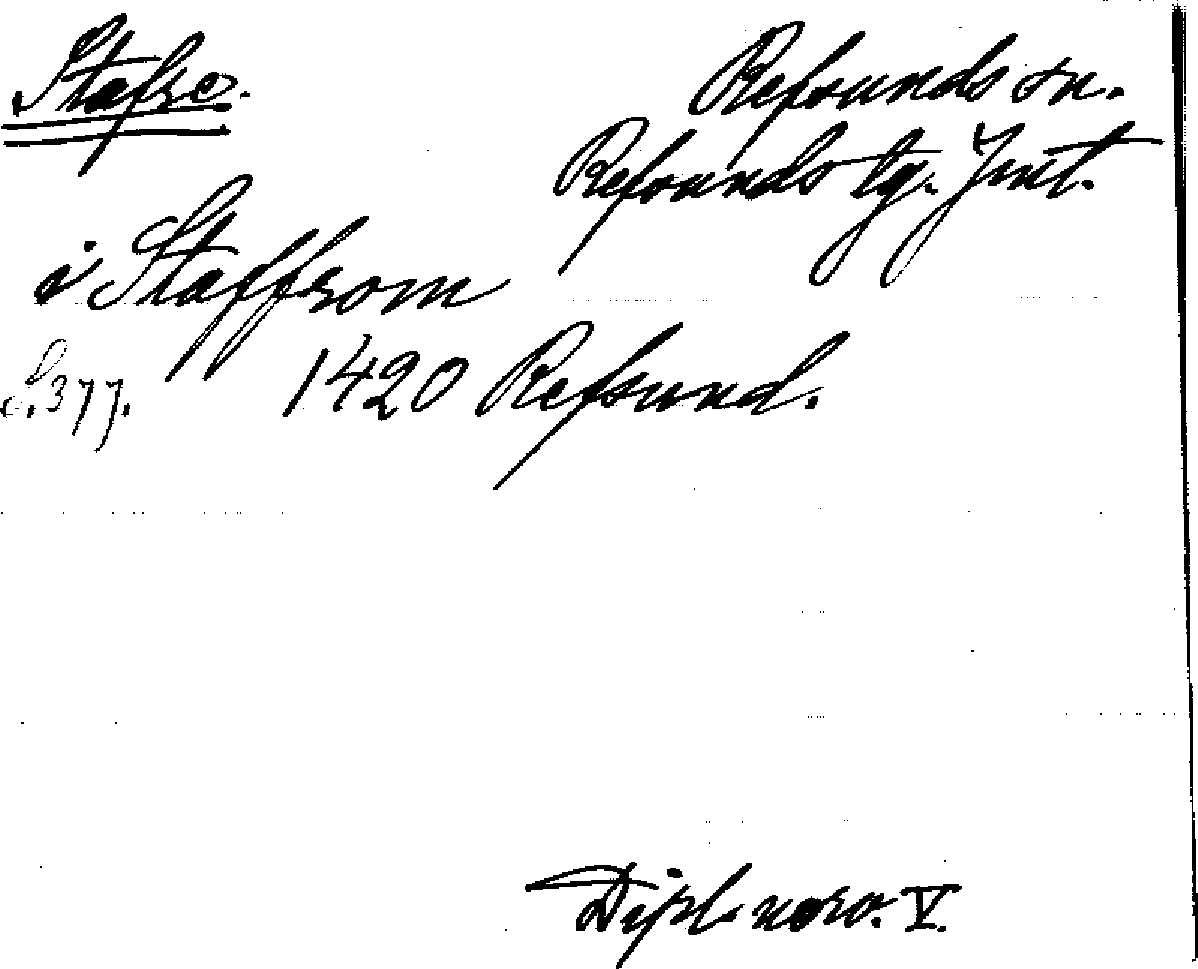 Stafre.
Refsunds sn.
Refsunds tg. Jmt.
i Staffrom
S. 377. 1420 Refsund.
Dipl. norv. V.